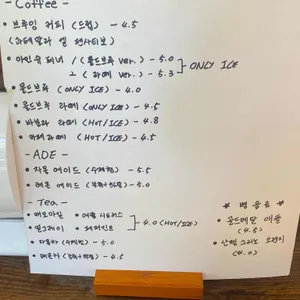 - Coffee -
• 브루잉 커피 (드립) - 4.5
(과테말라 엘 인사티보)
• 아인슈페너 / (콜드브루 ver.) - 5.0
(라떼 ver.) - 5.3
ONLY ICE
• 콜드브루 (ONLY ICE) - 4.0
• 콜드브루 라떼 (ONLY ICE) - 4.5
• 바닐라 라떼 (HOT/ICE) - 4.8
• 카페라떼 (HOT/ICE) - 4.5
- ADE -
• 자몽 에이드 (수제청) - 5.5
• 레몬 에이드 - 5.0
- Tea -
• 캐모마일 • 시트러스
• 얼그레이 • 페퍼민트
4.0 (HOT/ICE)
• 자몽차 (수제청) - 5.0
• 레몬차 - 4.5
* 병음료 *
• 골드메달 애플
(4.5)
• 오렌지
(4.0)